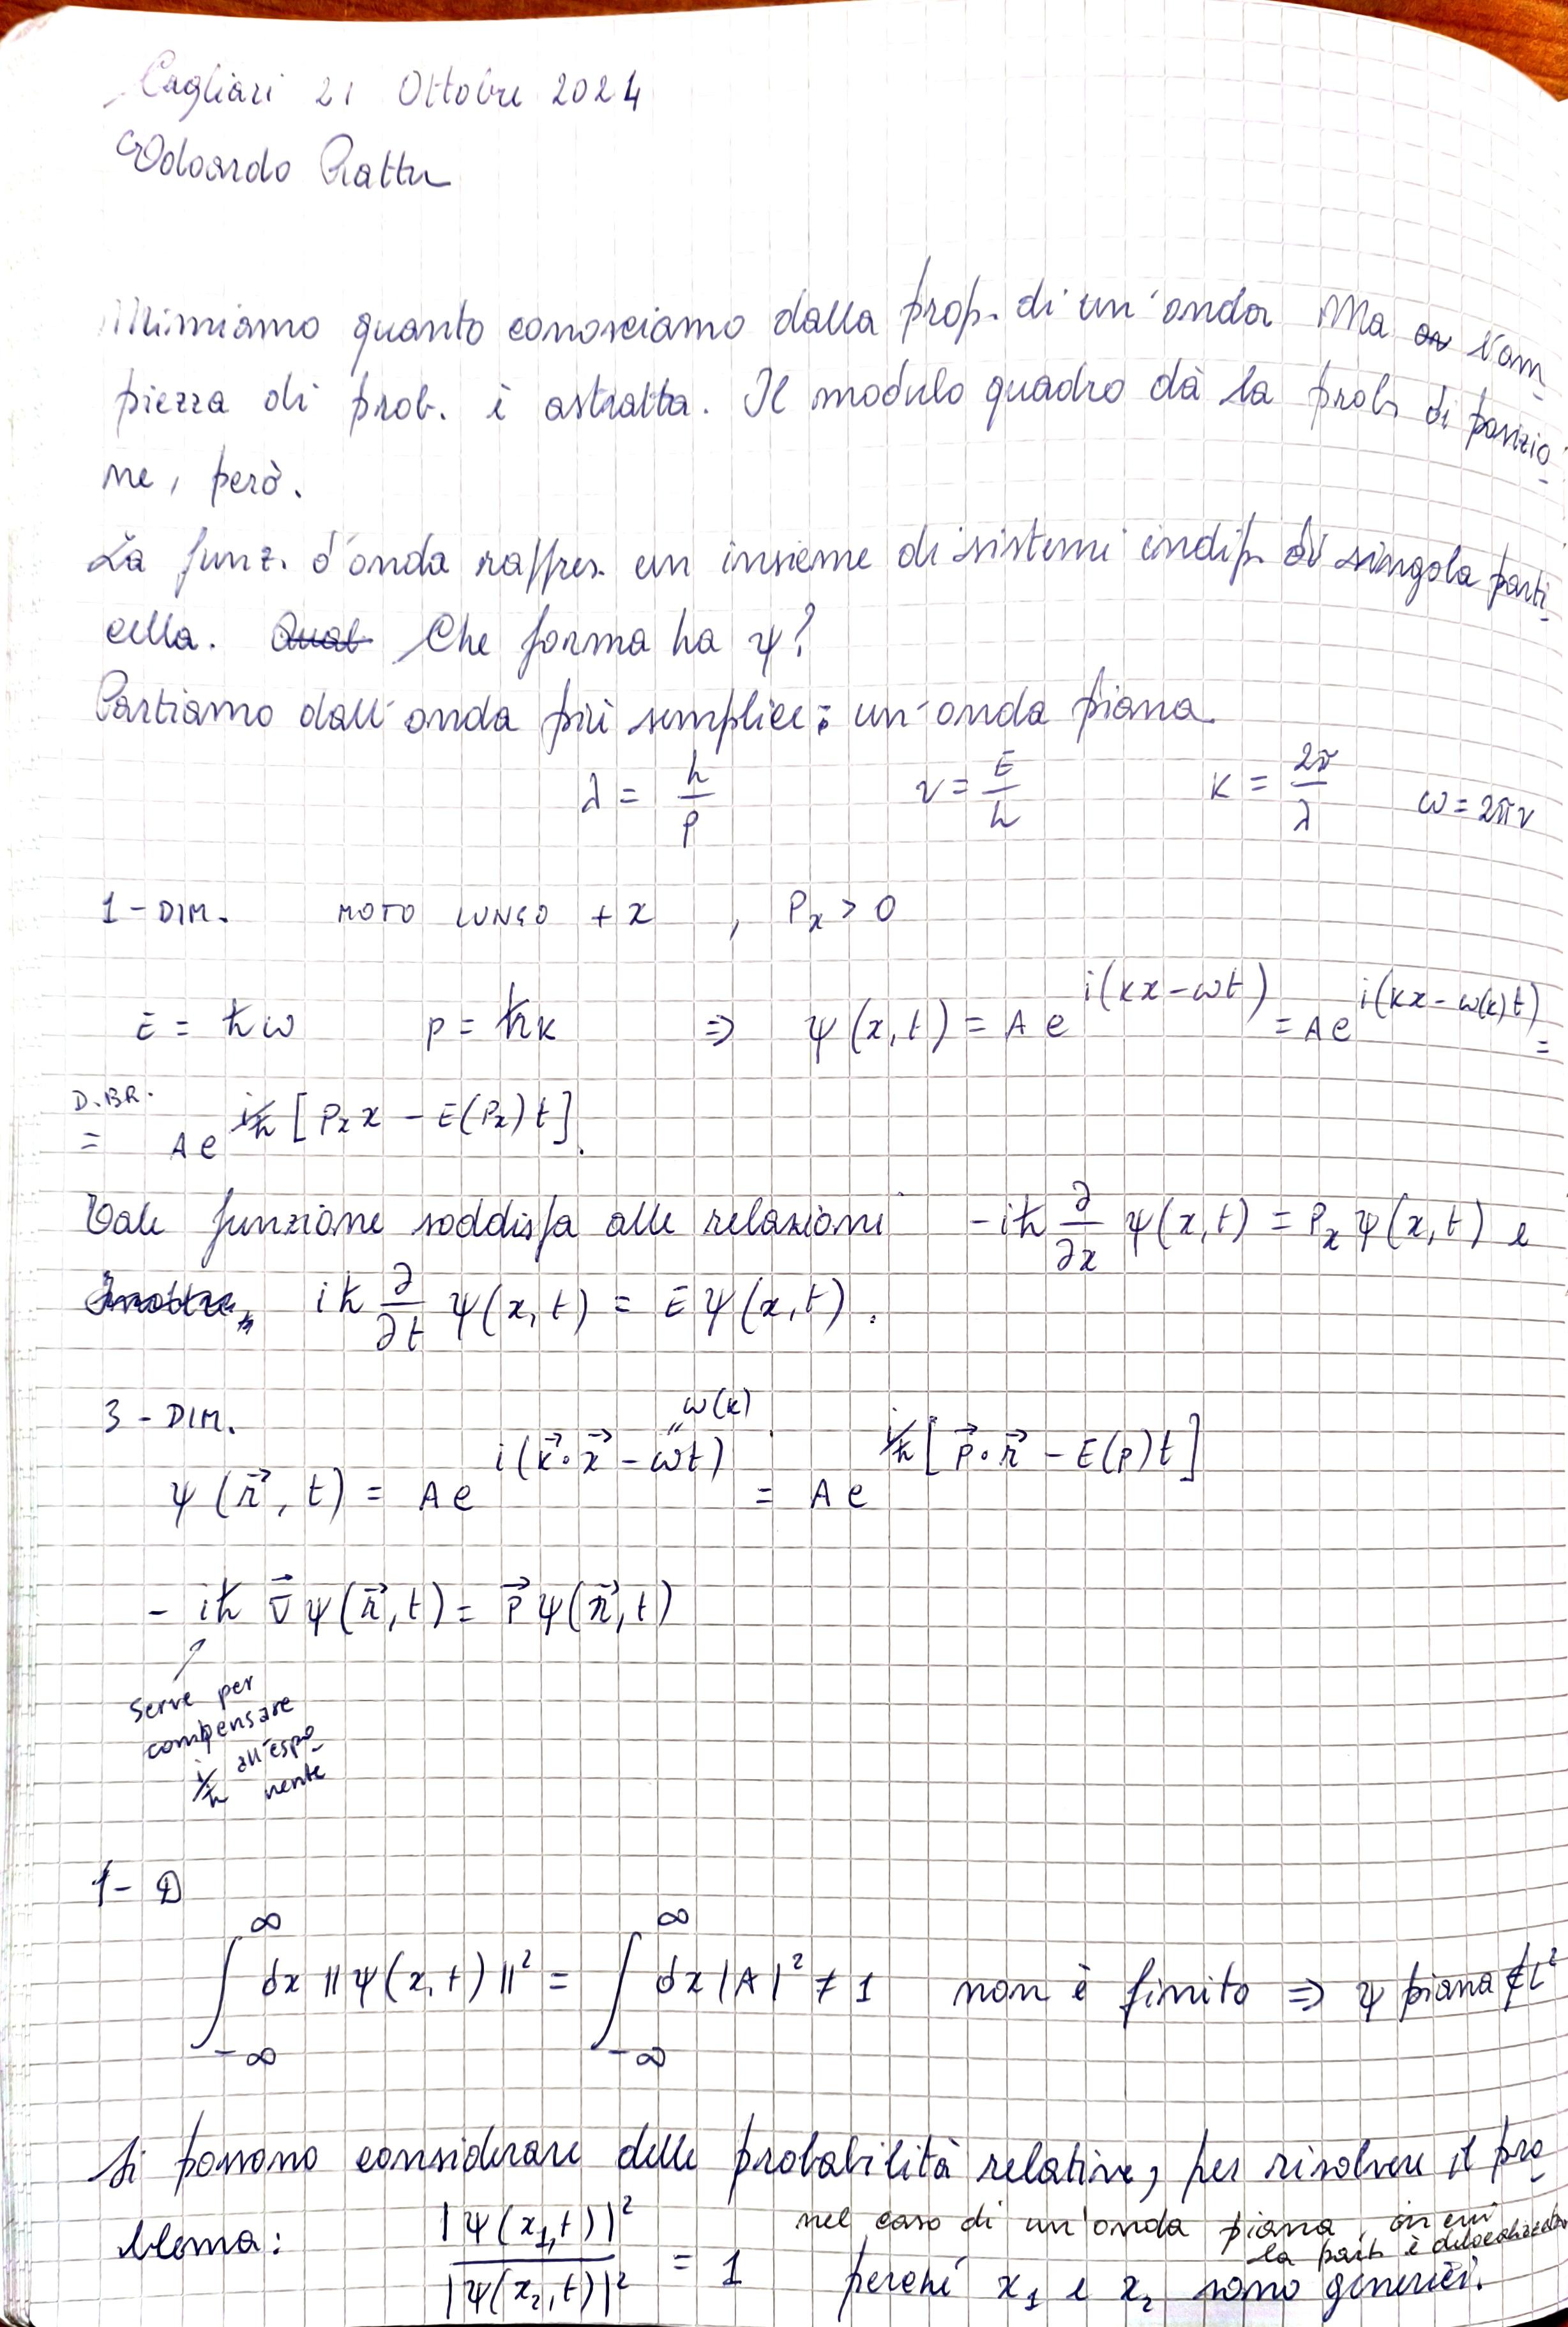 Cagliari 21 Ottobre 2024
Edoardo Pattu
Mimiamo quanto conosciamo dalla prop. di un'onda Ma l'am-
piezza di prob. è astratta. Il modulo quadro dà la prob. di posizio-
ne, però.
La funz. d'onda rappres. un insieme di sistemi indip. di singola parti-
cella. Che forma ha ψ?
Partiamo dall'onda più semplice: un'onda piana.
λ = h/p ν = E/h K = 2π/λ ω = 2πν
1-DIM. MOTO LUNGO +x , Px > 0
E = ħω p = ħk ⇒ ψ(x,t) = A e^{i(kx-ωt)} = A e^{i(kx-ω(k)t)} =
D.BR.
= A e^{i/ħ [Px x - E(Px)t]}.
Tale funzione soddisfa alle relazioni -iħ ∂/∂x ψ(x,t) = Px ψ(x,t) e
iħ ∂/∂t ψ(x,t) = Eψ(x,t).
3-DIM.
ω(k)
"
ψ(r⃗, t) = A e^{i(k⃗·x⃗ - ωt)} = A e^{i/ħ[p⃗·r⃗ - E(p)t]}
-iħ ∇⃗ ψ(r⃗,t) = p⃗ ψ(r⃗,t)
serve per
compensare
i/ħ all'espo-
nente
1-D
∫_{-∞}^{∞} dx ||ψ(x,t)||² = ∫_{-∞}^{∞} dx |A|² ≠ 1 non è finito ⇒ ψ piana ∉ L²
Si possono considerare delle probabilità relative, per risolvere il pro-
blema: |ψ(x₁,t)|² / |ψ(x₂,t)|² = 1 perché x₁ e x₂ sono generici.
nel caso di un'onda piana, in cui
la part. è delocalizzata